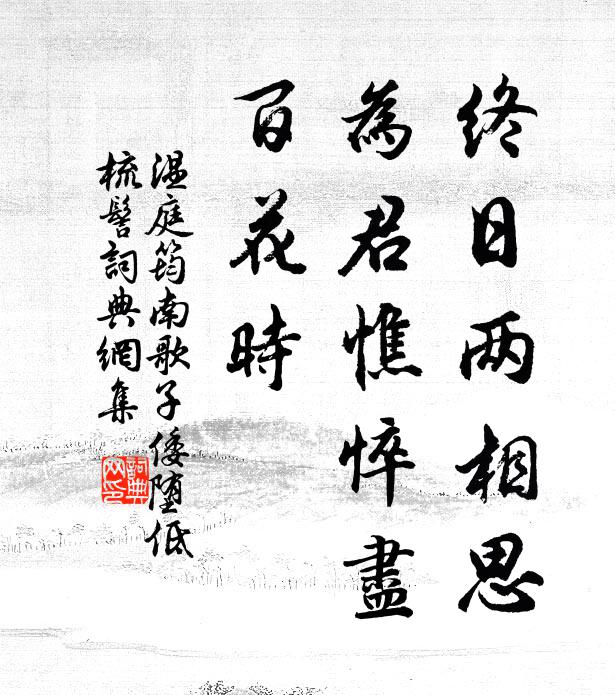 終日两相思
為君憔悴盡
百花時
温庭筠南歌子倭堕低
梳髻詞典網集
詞典网印